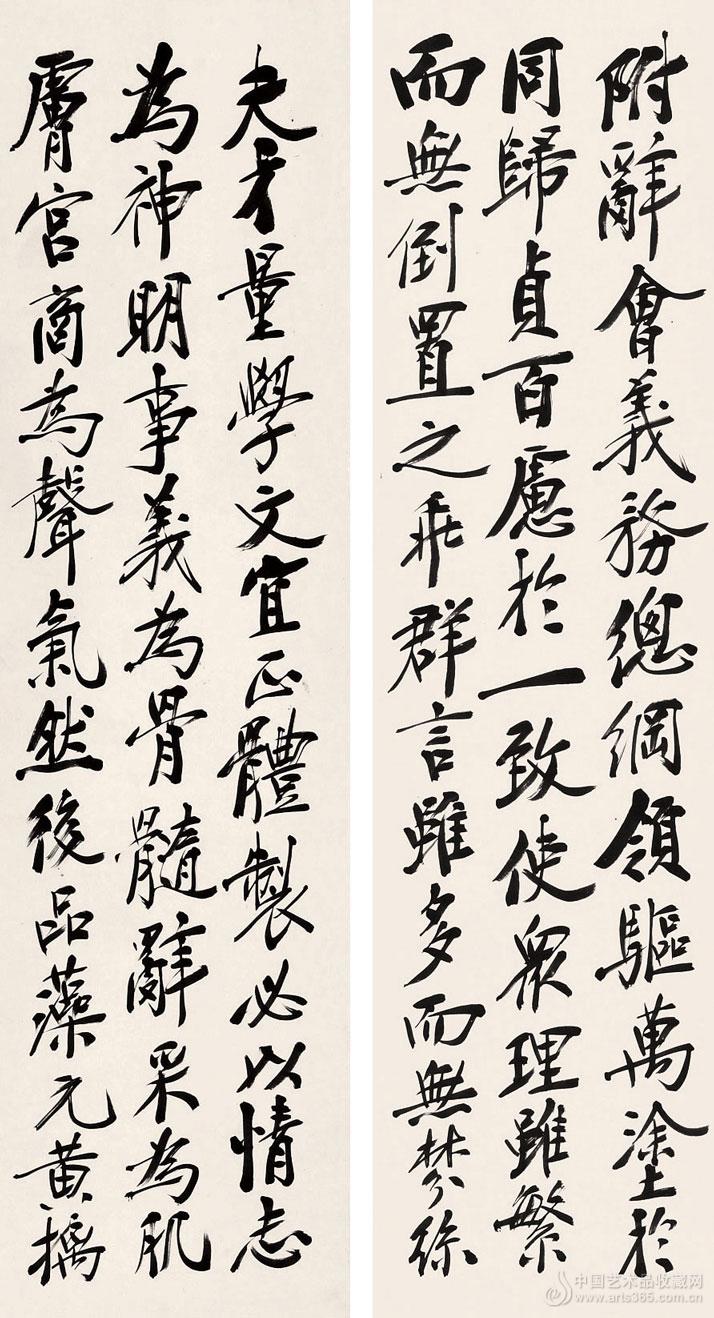 附辭會義務總綱領驅萬塗於
同歸貞百慮於一致使眾理雖繁
而無倒置之乖群言雖多而無棼絲
夫才量學文宜正體製必以情志
為神明事義為骨髓辭采為肌
膚宮商為聲氣然後品藻元黃摛
中国艺术品收藏网
www.arts365.com.cn